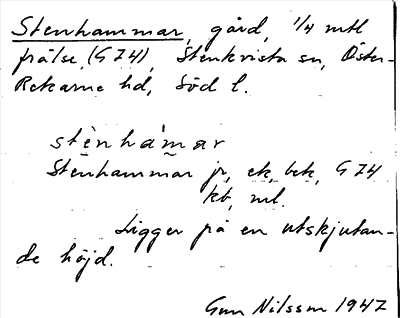 Stenhammar, gård, 1/4 mtl
frälse (G 74), Stenkvista sn, Öster-
Rekarne hd, Söd l.
stènha'mar
Stenhammar jr, ek, bek, G 74
kb, ml.
Ligger på en utskjutan-
de höjd.
Gun Nilsson 1947